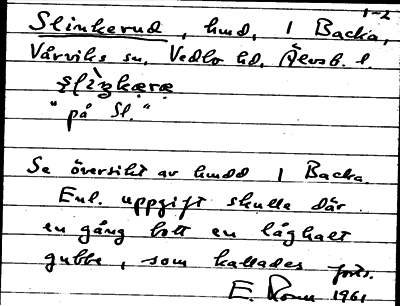 1-2
Slinkerud, hmd, 1 Backa,
Vårviks sn, Vedbo hd, Älvsb. l.
"på Sl."
Se översikt av hmdd 1 Backa.
Enl. uppgift skulle där
en gång bott en låghalt
gubbe, som kallades forts.
E. 1961